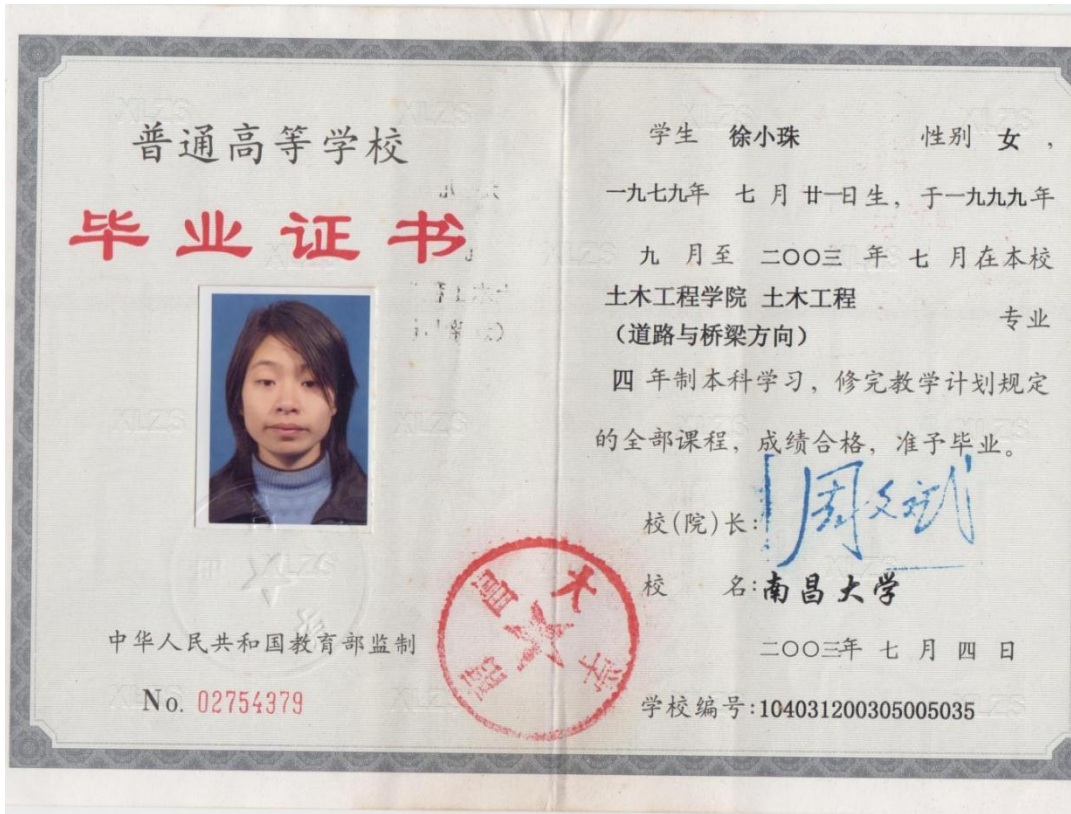 普通高等学校
毕业证书
中华人民共和国教育部监制
No. 02754379
学生 徐小珠 性别 女,
一九七九年 七 月 廿一日生, 于一九九九年
九 月至 二〇〇三 年 七 月在本校
土木工程学院 土木工程
(道路与桥梁方向) 专业
四 年制本科学习, 修完教学计划规定
的全部课程, 成绩合格, 准予毕业。
校(院)长: 周文斌
校 名: 南昌大学
二〇〇三年 七 月 四 日
学校编号: 104031200305005035
南昌大学
XLZS